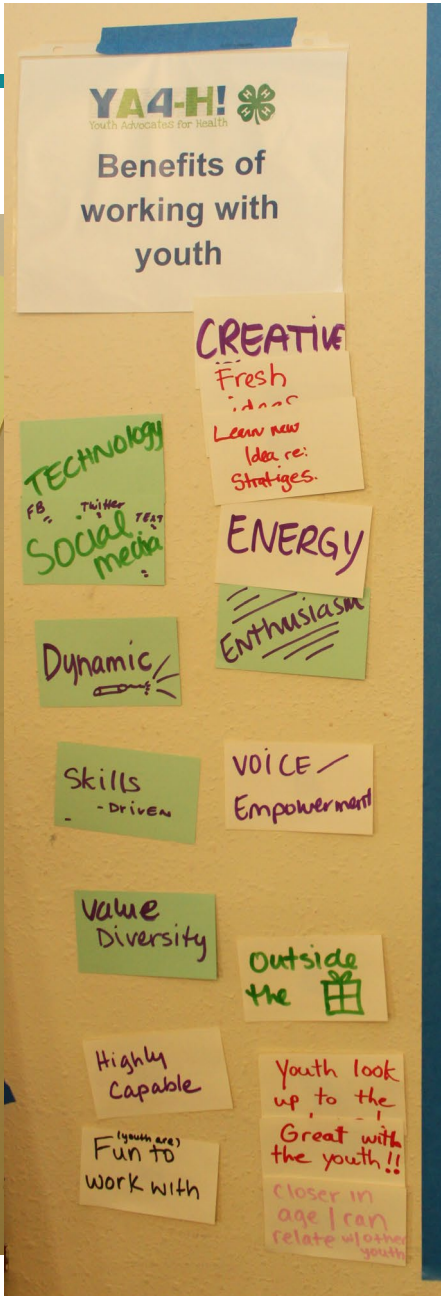 YA4-H!
Youth Advocates for Health
Benefits of
working with
youth
CREATIVE
Fresh
ideas
Learn new
Idea re:
Stratiges.
TECHNOlogy
FB Twitter TEXT
Social
media
ENERGY
Enthusiasm
Dynamic
Skills
- DRIVEN
VOICE /
Empowerment
Value
Diversity
outside
the
Highly
Capable
Youth look
up to the
(youth are)
Fun to
work with
Great with
the youth!!
closer in
age / can
relate w/other
youth